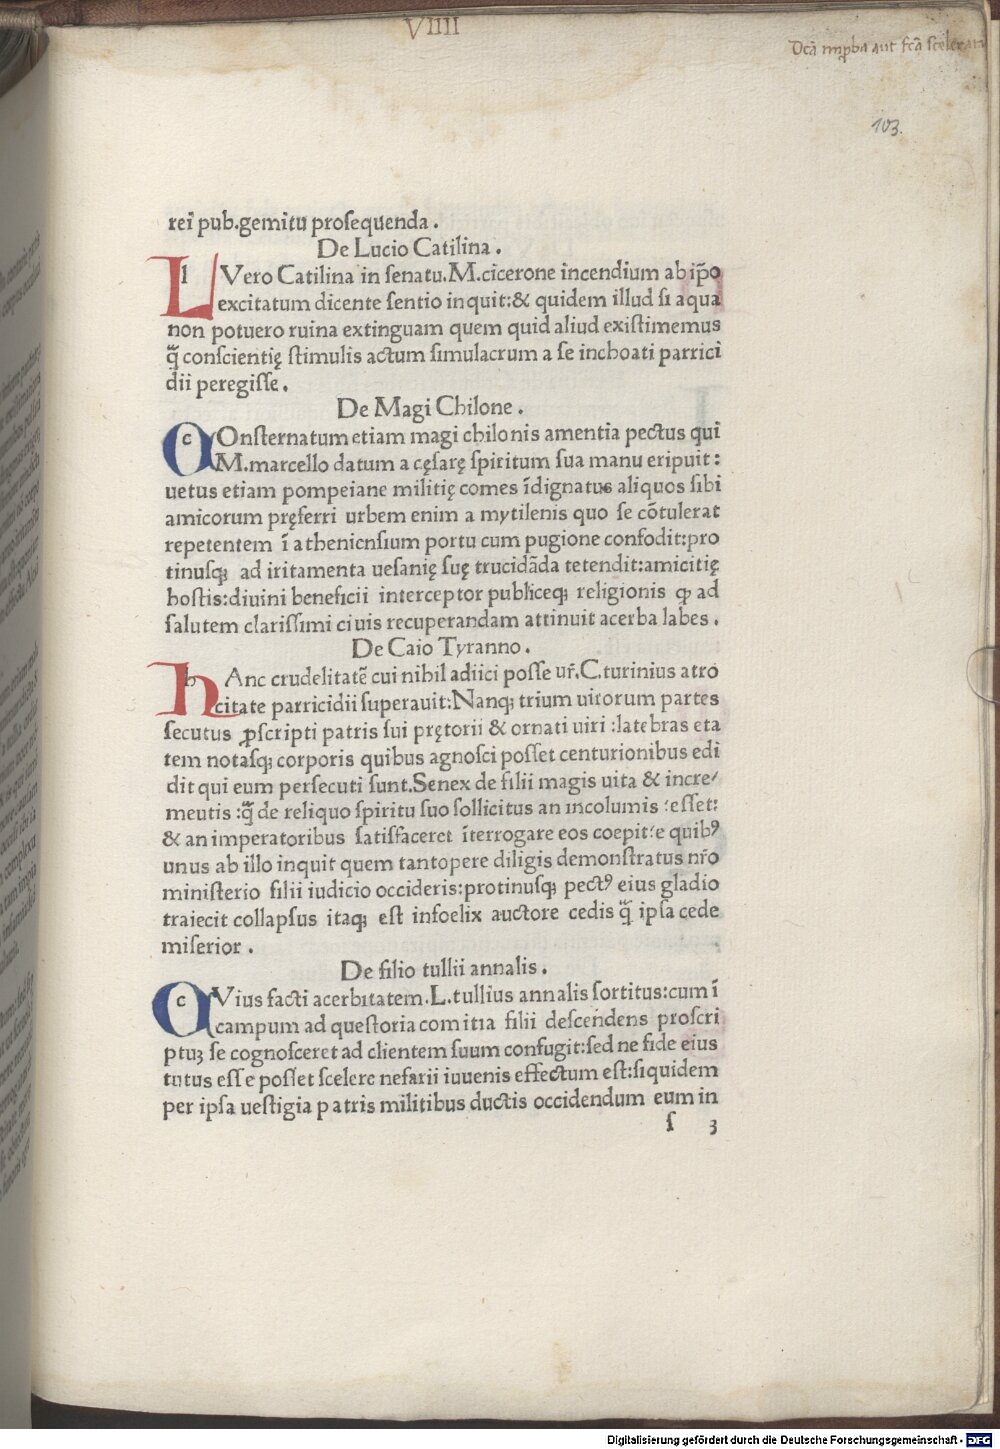 VIIII
Dcā impba aut fcā scelerata
103.
rei pub.gemitu prosequenda.
De Lucio Catilina.
L Vero Catilina in senatu.M.cicerone incendium ab ip̄o
excitatum dicente sentio inquit:& quidem illud si aqua
non potuero ruina extinguam quem quid aliud existimemus
q̄ conscientię stimulis actum simulacrum a se inchoati parrici
dii peregisse.
De Magi Chilone.
COnsternatum etiam magi chilonis amentia pectus qui
M.marcello datum a cęsarę spiritum sua manu eripuit:
uetus etiam pompeiane militię comes īdignatus aliquos sibi
amicorum pręferri urbem enim a mytilenis quo se cōtulerat
repetentem ī atheniensium portu cum pugione confodit:pro
tinusq; ad iritamenta uesanię suę trucidāda tetendit:amicitię
hostis:diuini beneficii interceptor publiceq; religionis ꝙ ad
salutem clarissimi ciuis recuperandam attinuit acerba labes.
De Caio Tyranno.
hAnc crudelitatē cui nihil adiici posse ur̄.C.turinius atro
citate parricidii superauit:Nanq; trium uirorum partes
secutus ꝓscripti patris sui prętorii & ornati uiri :latebras eta
tem notasq; corporis quibus agnosci posset centurionibus edi
dit qui eum persecuti sunt.Senex de filii magis uita & incre⸗
meutis :q̄ de reliquo spiritu suo sollicitus an incolumis :esset:
& an imperatoribus satisfaceret īterrogare eos coepit:e quibꝰ
unus ab illo inquit quem tantopere diligis demonstratus nr̄o
ministerio filii iudicio occideris:protinusq; pectꝰ eius gladio
traiecit collapsus itaq; est infoelix auctore cedis q̄ ipsa cede
miserior.
De filio tullii annalis.
CVius facti acerbitatem.L.tullius annalis sortitus:cum ī
campum ad questoria comitia filii descendens proscri
ptuꝫ se cognosceret ad clientem suum confugit:sed ne fide eius
tutus esse posset scelere nefarii iuuenis effectum est:siquidem
per ipsa uestigia patris militibus ductis occidendum eum in
s 3
Digitalisierung gefördert durch die Deutsche Forschungsgemeinschaft - DFG